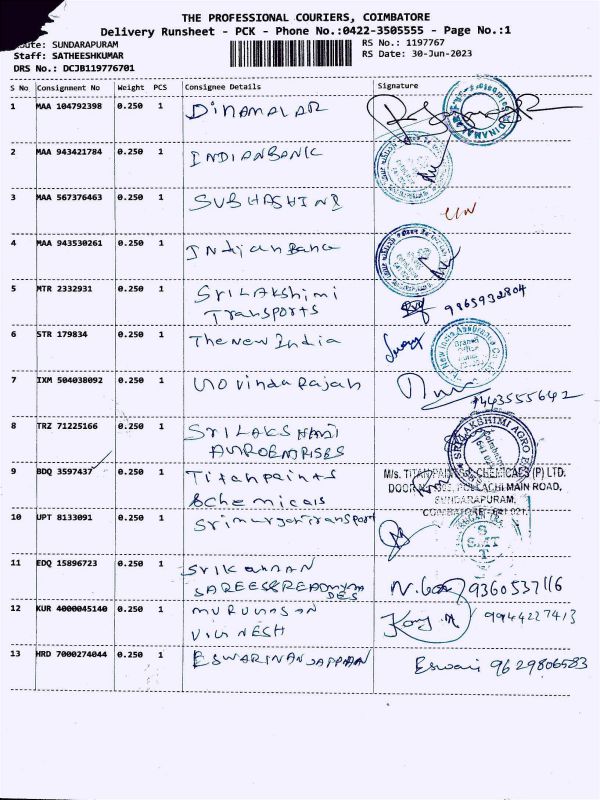 THE PROFESSIONAL COURIERS, COIMBATORE
Delivery Runsheet - PCK - Phone No.:0422-3505555 - Page No.:1
Route: SUNDARAPURAM
RS No.: 1197767
Staff: SATHEESHKUMAR
RS Date: 30-Jun-2023
DRS No.: DCJB119776701
S No Consignment No Weight PCS Consignee Details Signature
1 MAA 104792398 0.250 1 DINAMALAR
2 MAA 943421784 0.250 1 INDIANBANK
3 MAA 567376463 0.250 1 SUBHASHINI
4 MAA 943530261 0.250 1 Indian Bank
5 MTR 2332931 0.250 1 SRILAKshimi
Transports
9965932804
6 STR 179834 0.250 1 The New India
7 IXM 504038092 0.250 1 Govindarajah
9443555642
8 TRZ 71225166 0.250 1 SRILAKSHAMI
SRILAKSHIMI AGRO
9 BDQ 3597437 0.250 1 Titanpaints
&chemicals
M/s. TITANPAINTS & CHEMICALS (P) LTD.
POLLACHI MAIN ROAD,
SUNDARAPURAM,
COIMBATORE - 641 021.
10 UPT 8133091 0.250 1 Srimurgantransport
S
SMT
T
11 EDQ 15896723 0.250 1 SRIKANNAN
9360537116
12 KUR 4000045140 0.250 1 MURUGASAN
VIGNESH
9944227413
13 HRD 7000274044 0.250 1 ESWARINANJAPPAN
Eswari 9629806583